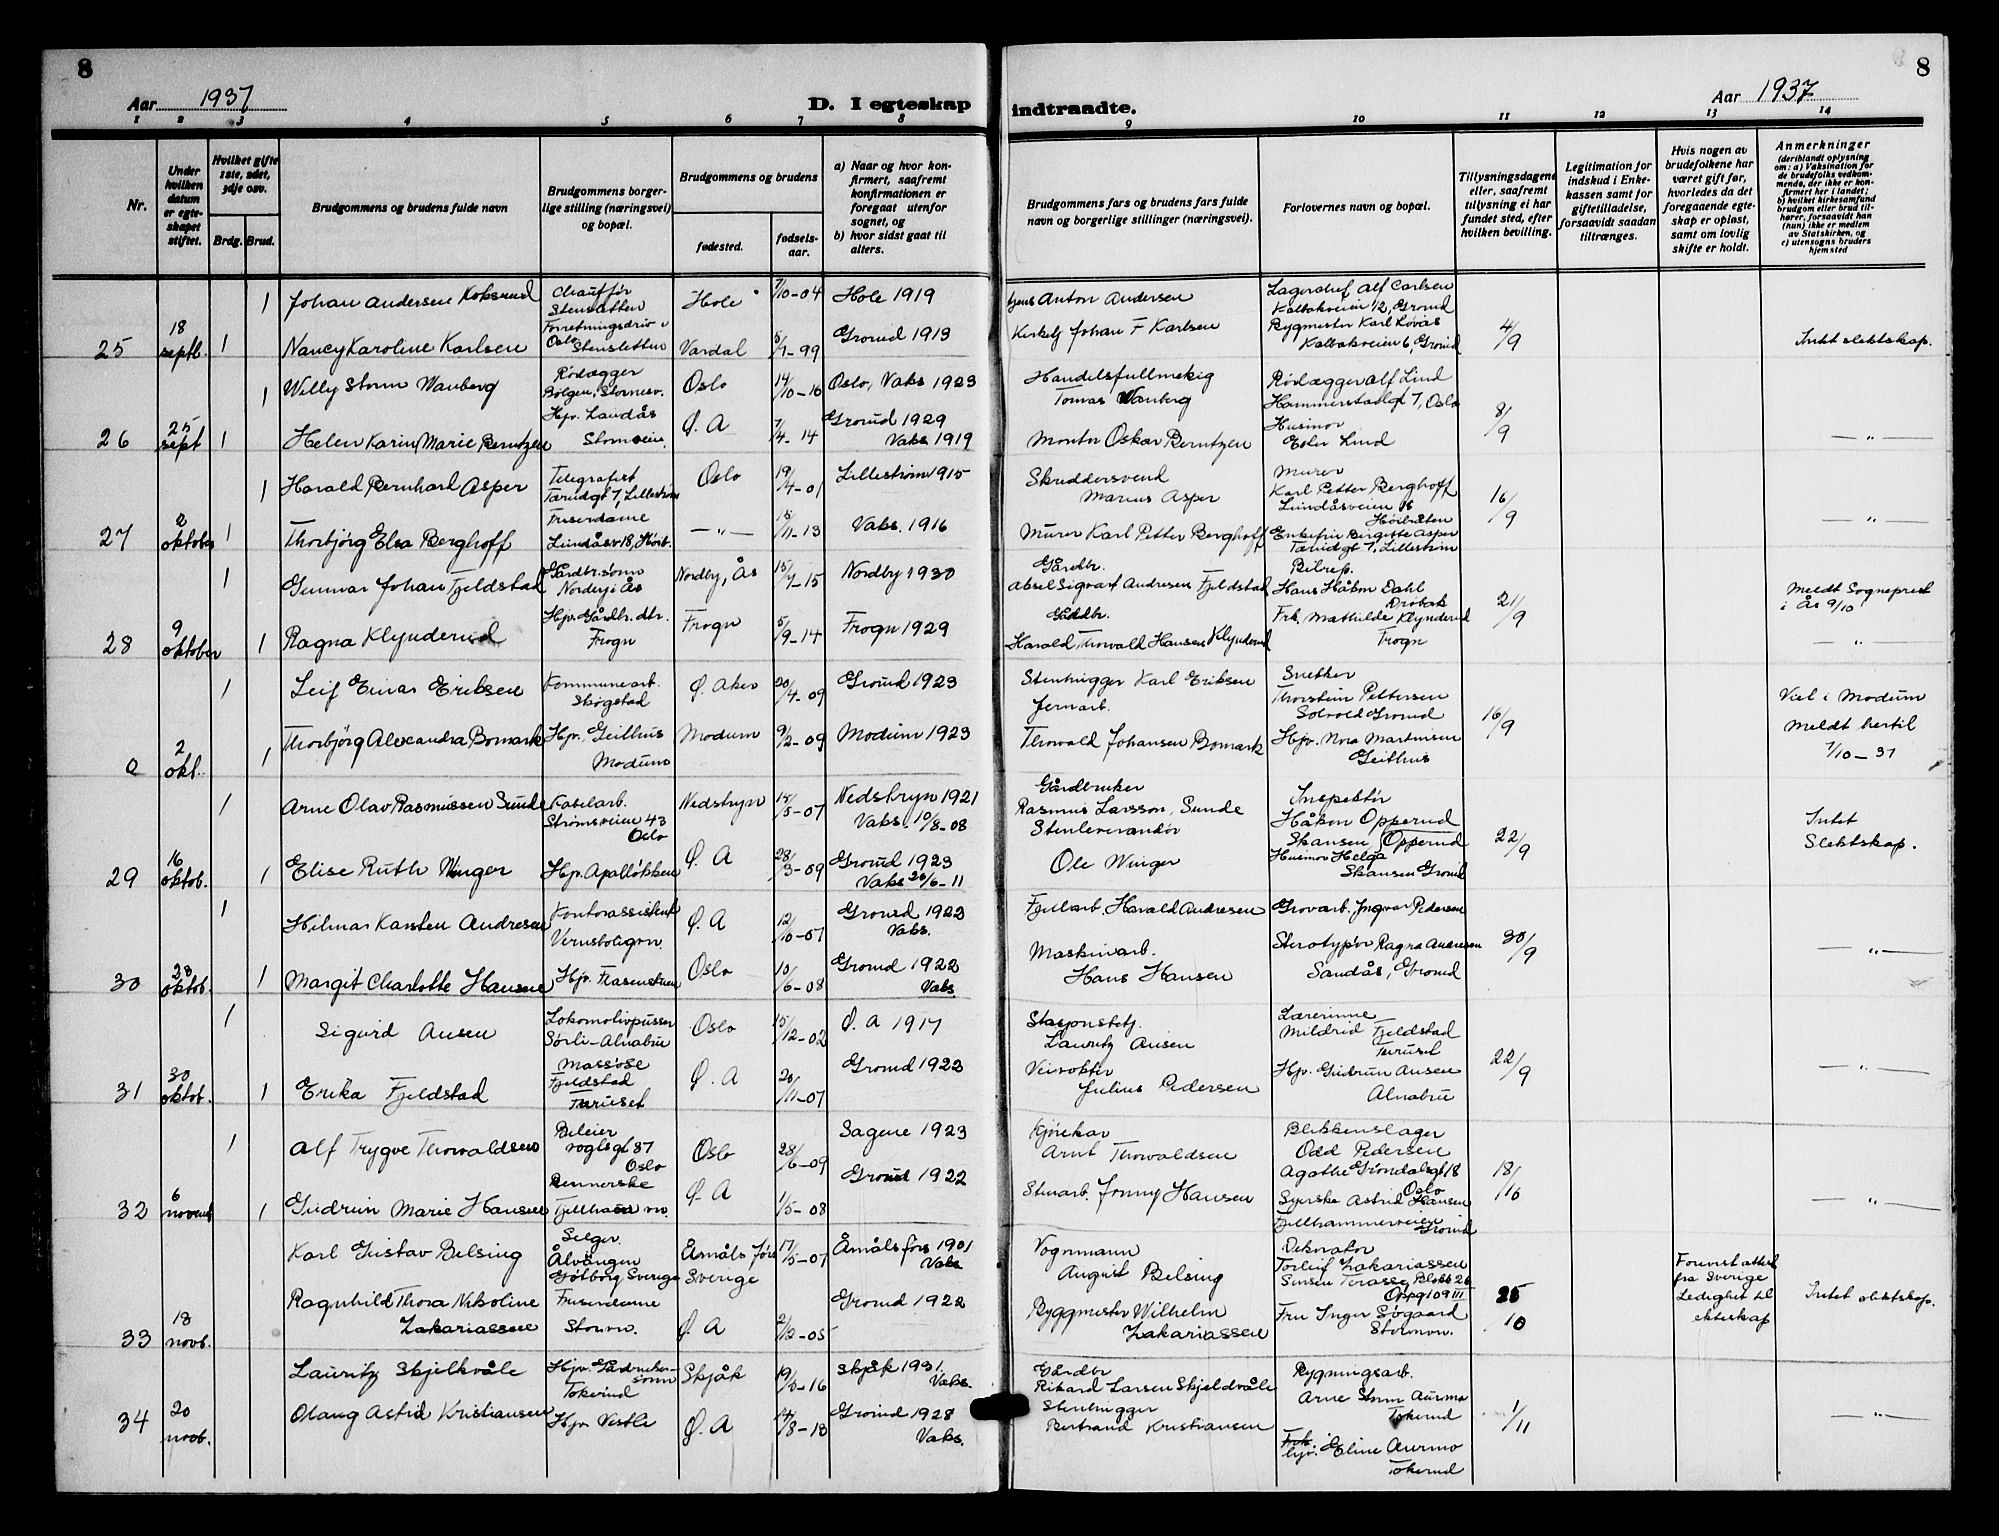 8
8
Aar 1937
D. I egteskap
indtraadte.
Aar 1937
1 2 3 4 5 6 7 8 9 10 11 12 13 14
Nr.
Under hvilken datum er egteskapet stiftet.
Hvilket gifte 1ste, 2det, 3dje osv.
Brdg. Brud.
Brudgommens og brudens fulde navn
Brudgommens borgerlige stilling (næringsvei) og bopæl.
Brudgommens og brudens
fødested.
fødselsaar.
a) Naar og hvor konfirmert, saafremt konfirmationen er foregaat utenfor sognet, og
b) hvor sidst gaat til alters.
Brudgommens fars og brudens fars fulde navn og borgerlige stillinger (næringsvei).
Forlovernes navn og bopæl.
Tillysningsdagene eller, saafremt tillysning ei har fundet sted, efter hvilken bevilling.
Legitimation for indskud i Enkekassen samt for giftetilladelse, forsaavidt saadan tiltrænges.
Hvis nogen av brudefolkene har været gift før, hvorledes da det foregaaende egteskap er opløst, samt om lovlig skifte er holdt.
Anmerkninger
(deriblandt oplysning om: a) Vaksination for de brudefolks vedkommende, der ikke er konfirmert her i landet; b) hvilket kirkesamfund brudgom eller brud tilhører, forsaavidt han (hun) ikke er medlem av Statskirken, og c) utensogns bruders hjemsted
1 Johan Andersen Koksrud Chauffør Stensletten Hole 7/10-04 Hole 1919 Anton Andersen Lagersjef Alf Carlsen Kalbakveien 12, Grorud
25 18 septb. 1 Nancy Karoline Karlsen Forretningsdriv. Oslo Stensletten Vardal 5/7-99 Grorud 1913 Kirketj Johan F Karlsen Bygmester Karl Løvås Kalbakveien 6, Grorud 4/9 Intet slektskap.
1 Willy Storm Wauberg Rørlægger Bølgen, Stormsv. Oslo 14/10-16 Oslo, Vaks 1923 Handelsfullmektig Tomas Wauberg Rørlægger Alf Lind Hammerstadgt 7, Oslo
26 25 sept 1 Helen Karin Marie Berntzen Hjv. Landås Stormveien Ø. A 7/4-14 Grorud 1929 Vaks 1919 Montør Oskar Berntzen Husmor Ester Lind 8/9 — " —
1 Harald Bernhard Asper Telegrafist Tærudgt 7, Lillestrøm Oslo 19/4-01 Lillestrøm 1915 Skreddersvend Marius Asper Murer Karl Petter Berghoff Lundåsveien 18 Høibråten
27 2 oktober 1 Thorbjørg Elsa Berghoff Friserdame Lundåsv 18, Høib. — " — 18/11-13 Vaks. 1916 Murer Karl Petter Berghoff Enkefru Birgitte Asper Tærudgt 7, Lillestrøm 16/9 — " —
1 Gunnar Johan Fjeldstad Gårdbr. sønn Nordby i Ås Nordby, Ås 15/7-15 Nordby 1930 Gårdbr. Aksel Sigvart Andresen Fjeldstad Bilrep. Hans Håkon Dahl Drøbak Meldt Sogneprest i Ås 9/10
28 9 oktober 1 Ragna Klynderud Hjv. Gårdbr. dtr. Frogn Frogn 5/9-14 Frogn 1929 Gårdbr. Harald Thorvald Hansen Klynderud Frk. Mathilde Klynderud Frogn 21/9 — " —
1 Leif Einar Eriksen Kommunearb. Skøgstad Ø. Aker 20/4-09 Grorud 1923 Stenhugger Karl Eriksen Snekker Thorstein Pettersen Solvold Grorud Viet i Modum
0 2 okt. 1 Thorbjørg Alexandra Bomark Hjv. Geithus Modum Modum 9/2-09 Modum 1923 Jernarb. Thorvald Johansen Bomark Hjv. Nora Martinsen Geithus 16/9 meldt hertil 7/10-37
1 Arne Olav Rasmussen Sunde Kabelarb. Strømsveien 43 Oslo Nedstryn 18/5-07 Nedstryn 1921 Vaks. 10/8-08 Gårdbruker Rasmus Larsson, Sunde Inspektør Håkon Opperud Skansen Opperud Intet Slektskap.
29 16 oktob. 1 Elise Ruth Winger Hjv. Apalløkken Ø. A 28/3-09 Grorud 1923 Vaks 20/6-11 Stenleverandør Ole Winger Husmor Helga Skansen Grorud 22/9
1 Hilmar Karsten Andresen Kontorassistent Vernsboligvn. Ø. A 12/10-07 Grorud 1922 Vaks. Fjellarb. Harald Andresen Grovarb. Ingvar Pedersen
30 23 oktob. 1 Margit Charlotte Hansen Hjv. Oslo 10/6-08 Grorud 1922 Vaks Maskinarb. Hans Hansen Sterotypør Ragna Andresen Sandås, Grorud 30/9 — " —
1 Sigurd Ausen Lokomotivpusser Sørli-Alnabru Oslo 15/12-02 Ø. A 1917 Stasjonsbetj. Lauritz Ausen Lærerinne Mildrid Fjeldstad Furuset
31 30 oktob. 1 Erika Fjeldstad Massøse Fjeldstad Furuset Ø. A 20/11-07 Grorud 1922 Veivokter Julius Pedersen Hjv. Gudrun Ausen Alnabru 22/9 — " —
1 Alf Trygve Thorvaldsen Bileier Voglsgt 37 Oslo Oslo 28/6-09 Sagene 1923 Kjørekar Arnt Thorvaldsen Blikkenslager Odd Pedersen Agathe Grøndalsgt 18 Oslo
32 6 novemb 1 Gudrun Marie Hansen Rennerske Fjellhamar vn. Ø. A 1/5-08 Grorud 1922 Stenarb. Jonny Hansen Syerske Astrid Hansen Fjellhammerveien Grorud 18/10 — " —
Karl Gustav Belsing Selger Älvängen Gøtborg Sverige Åmåls fors Sverige 17/5-07 Åmåls fors 1901 Vaks Vognmann August Belsing Dekoratør Torleif Zakariassen Sinsen Terasse Blokk 26 Oppg 109 III Forevist attest fra Sverige Ledighet til ekteskap
33 18 novb. Ragnhild Thora Nikoline Zakariassen Friserdame Stormv. Ø. A 2/12-05 Grorud 1922 Byggmester Wilhelm Zakariassen Fru Inger Søgaard Stormvn. 25/10 Intet slektskap.
Lauritz Skjelkvåle Hjv. Gårdbrukersønn Tokerud Skjåk 19/8-16 Skjåk 1931. Vaks. Gårdbr Rikard Larsen Skjeldvåle Bygningsarb. Arne Aurmo Tokerud
34 20 novb. Olaug Astrid Kristiansen Hjv Vestli Ø. A 14/8-13 Grorud 1928 Vaks. Stenhugger Bertrand Kristiansen hjv. Eline Aurmo Tokerud 1/11 — " —